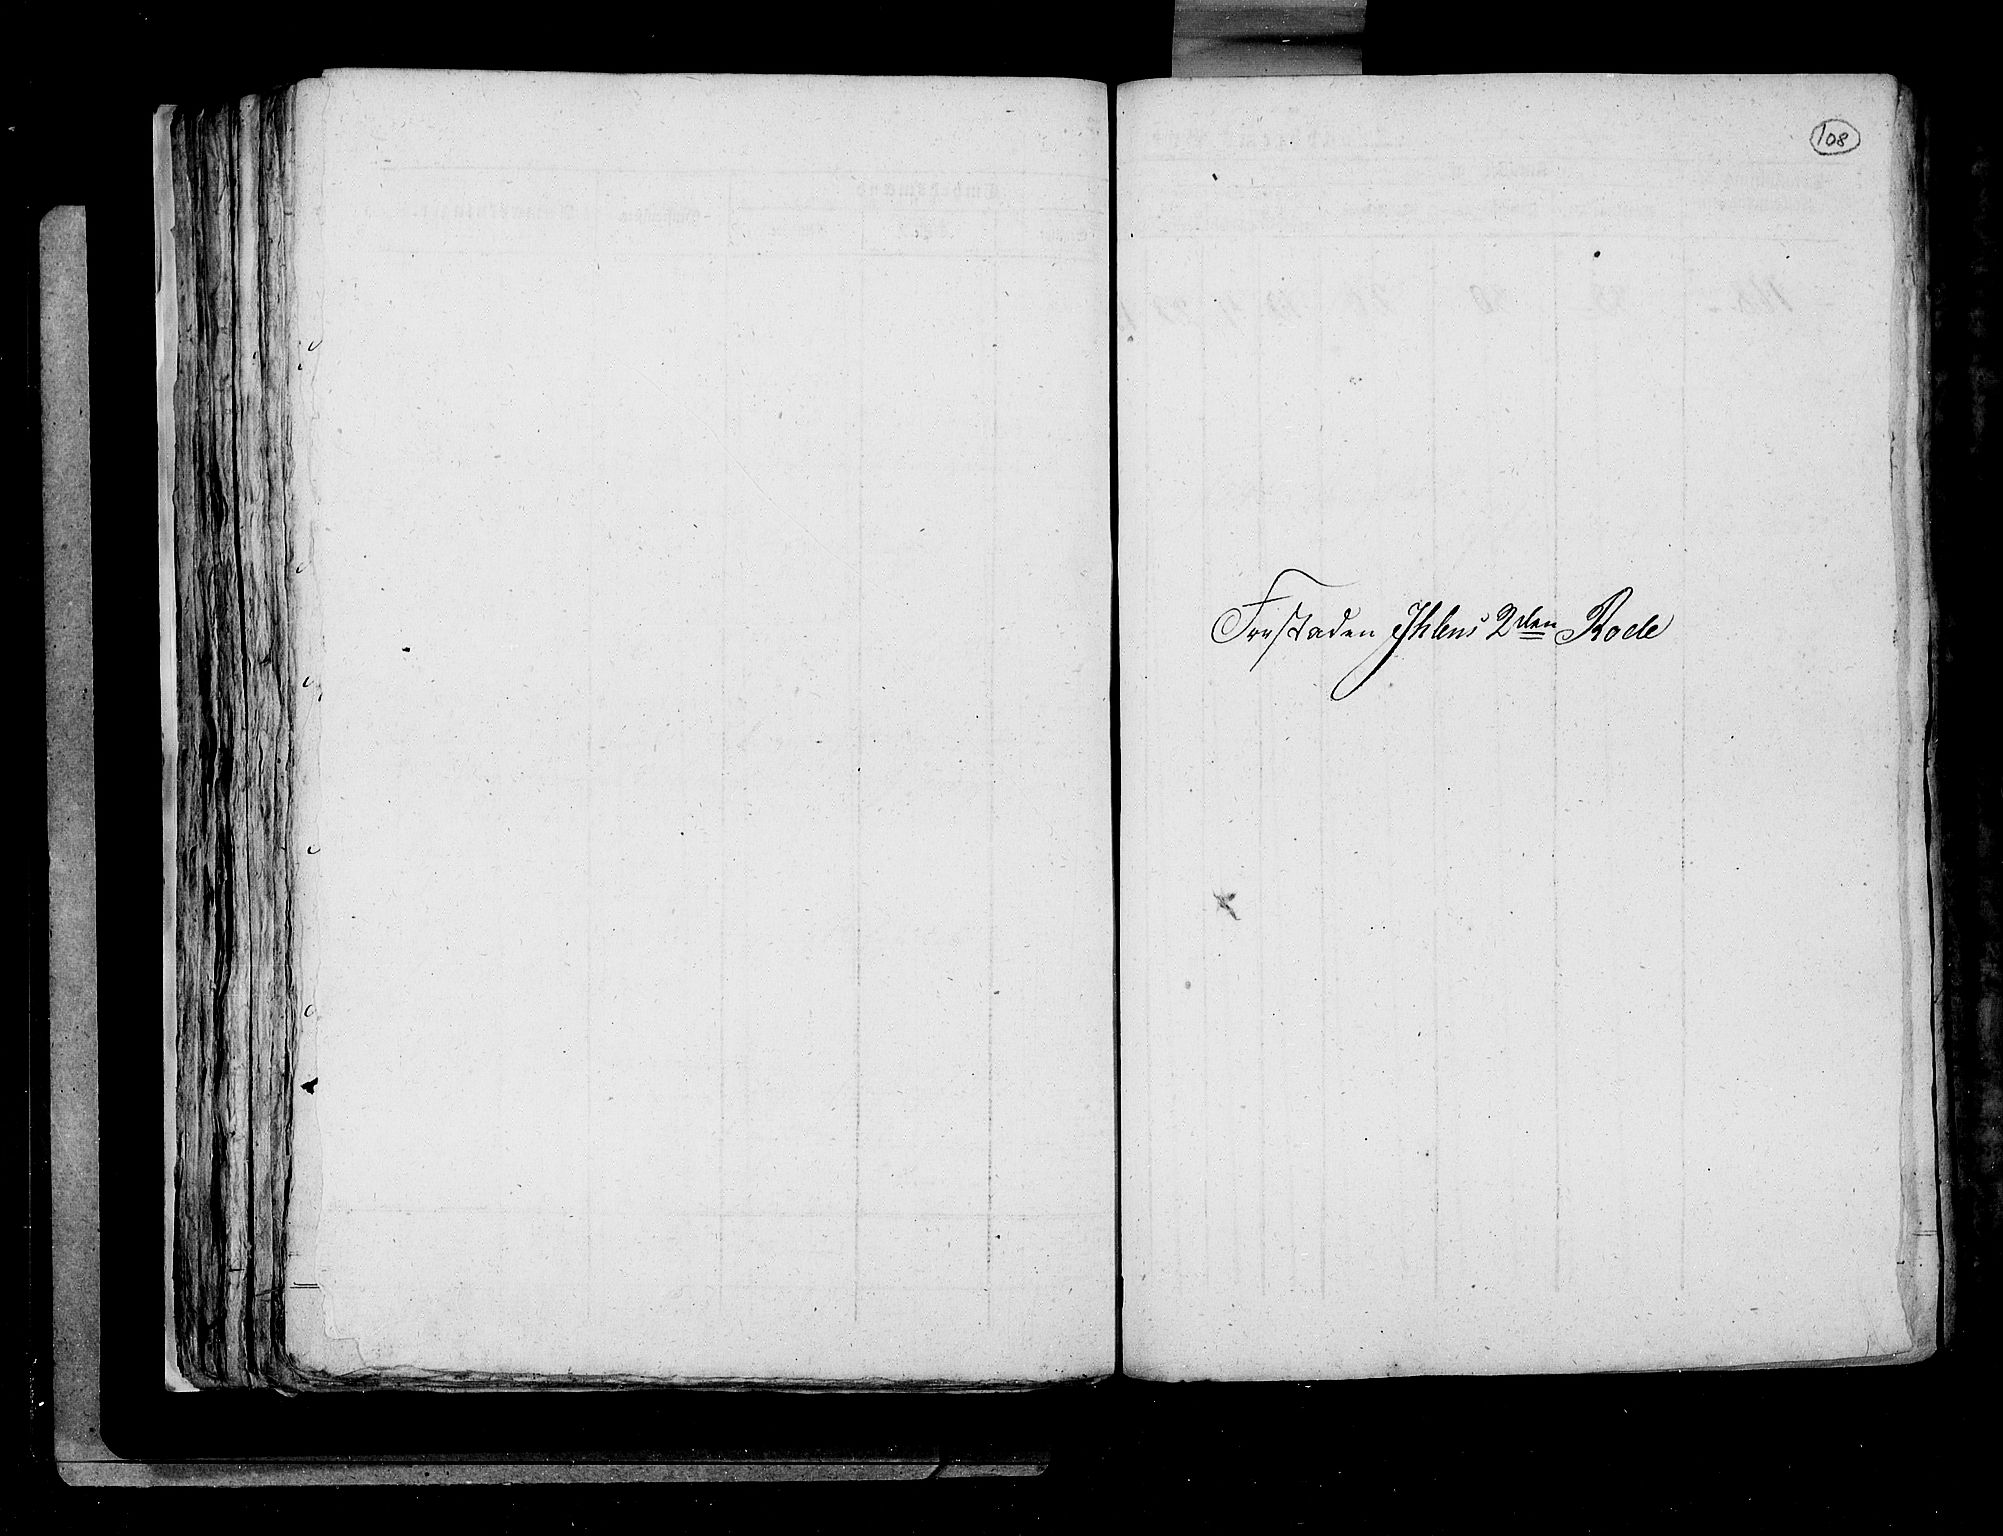 108
Forstaden Ihlens 2den Rode